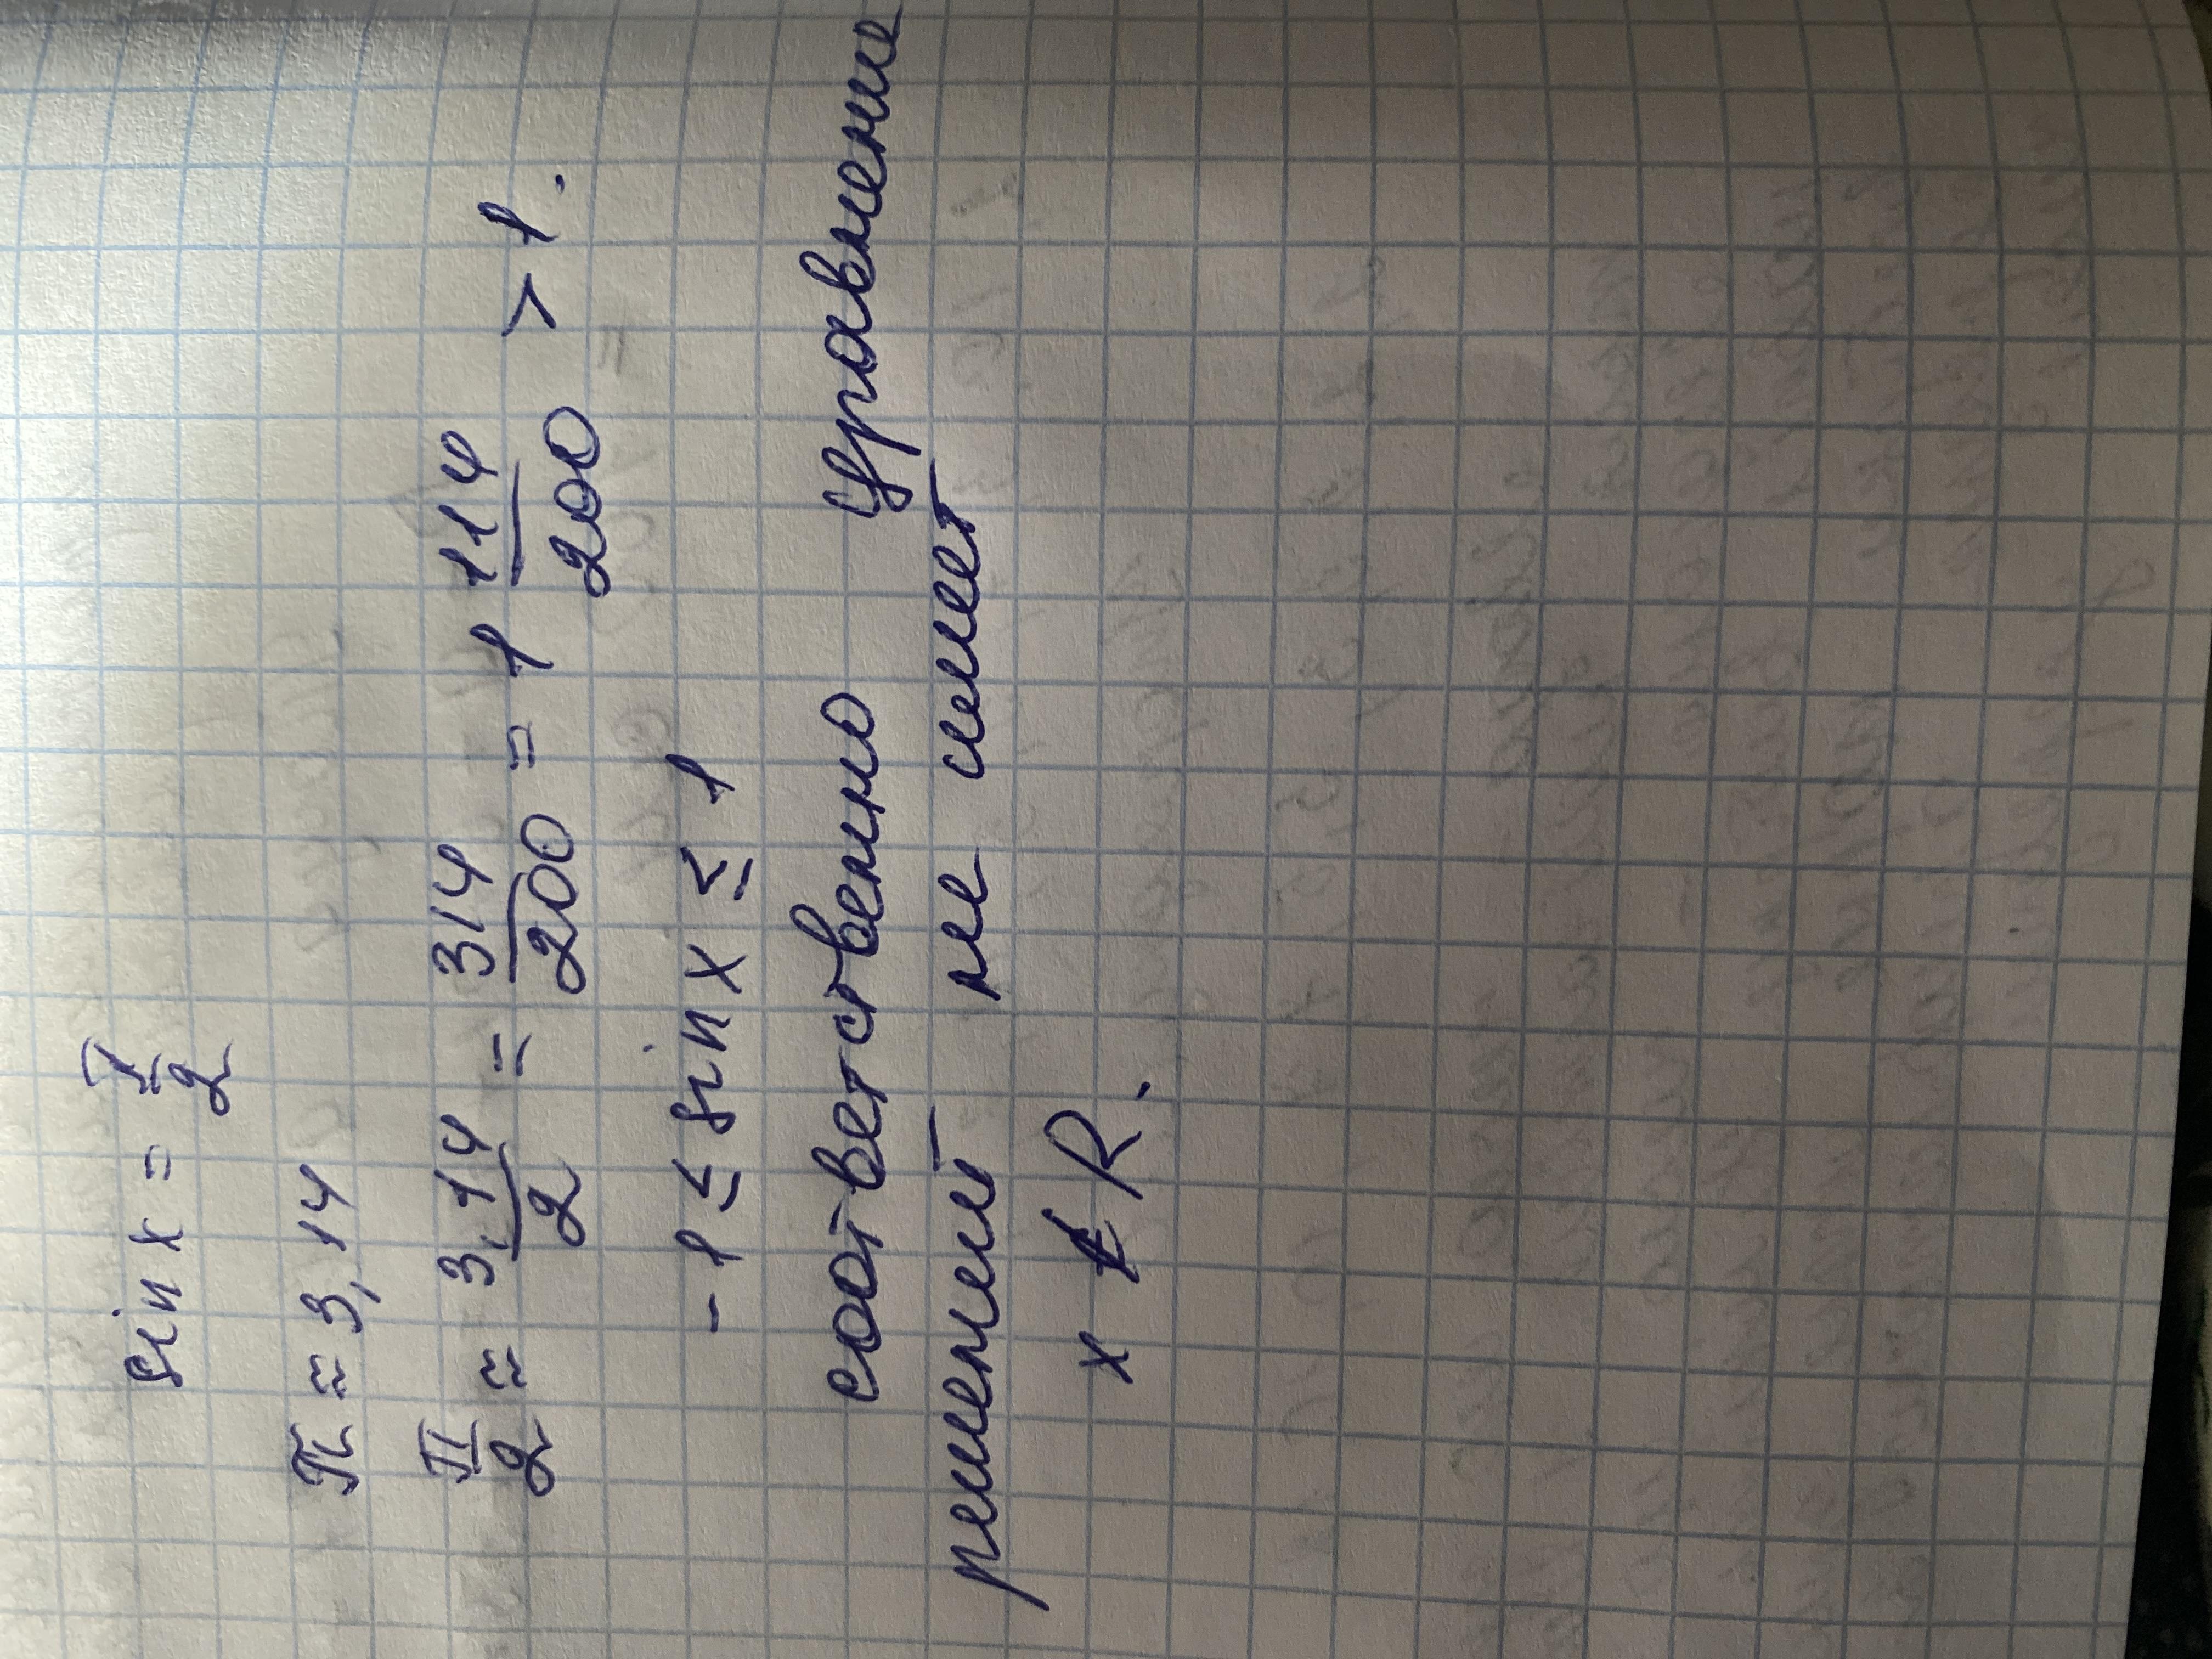 sin x = π/2
π ≈ 3,14
π/2 ≈ 3,14/2 = 314/200 = 1 114/200 > 1.
-1 ≤ sin x ≤ 1
соответственно уравнение
решений не имеет
x ∉ R.